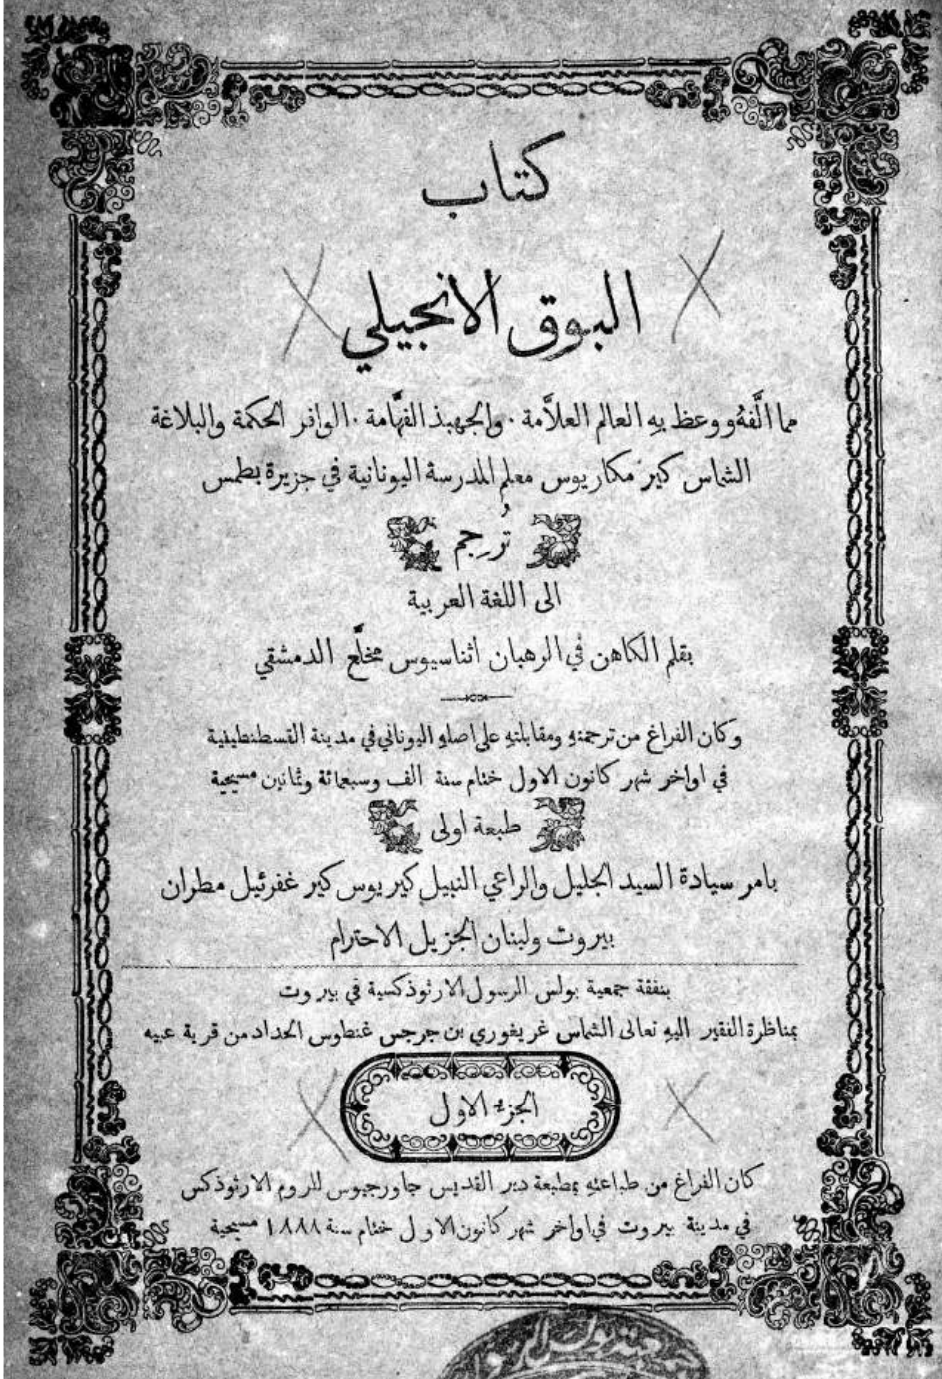 كتاب
البوق الانجيلي
مما الَّفهُ ووعظ بهِ العالم العلاَّمة ٠ والجهبذ الفهَّامة ٠ الوافر الحكمة والبلاغة
الشماس كير مكاريوس معلم المدرسة اليونانية في جزيرة بطمس
تُرجِم
الى اللغة العربية
بقلم الكاهن في الرهبان اثناسيوس مخلَّع الدمشقي
وكان الفراغ من ترجمتهِ ومقابلتهِ على اصلهِ اليوناني في مدينة القسطنطينية
في اواخر شهر كانون الاول ختام سنة الف وسبعمائة وثمانين مسيحية
طبعة اولى
بامر سيادة السيد الجليل والراعي النبيل كيريوس كير غفرئيل مطران
بيروت ولبنان الجزيل الاحترام
بنفقة جمعية بولس الرسول الارثوذكسية في بيروت
بمناظرة الفقير اليهِ تعالى الشماس غريغوري بن جرجس غنطوس الحداد من قرية عبيه
الجزء الاول
كان الفراغ من طباعتهِ بمطبعة دير القديس جاورجيوس للروم الارثوذكس
في مدينة بيروت في اواخر شهر كانون الاول ختام سنة ١٨٨٨ مسيحية
جمعية بولس الرسول